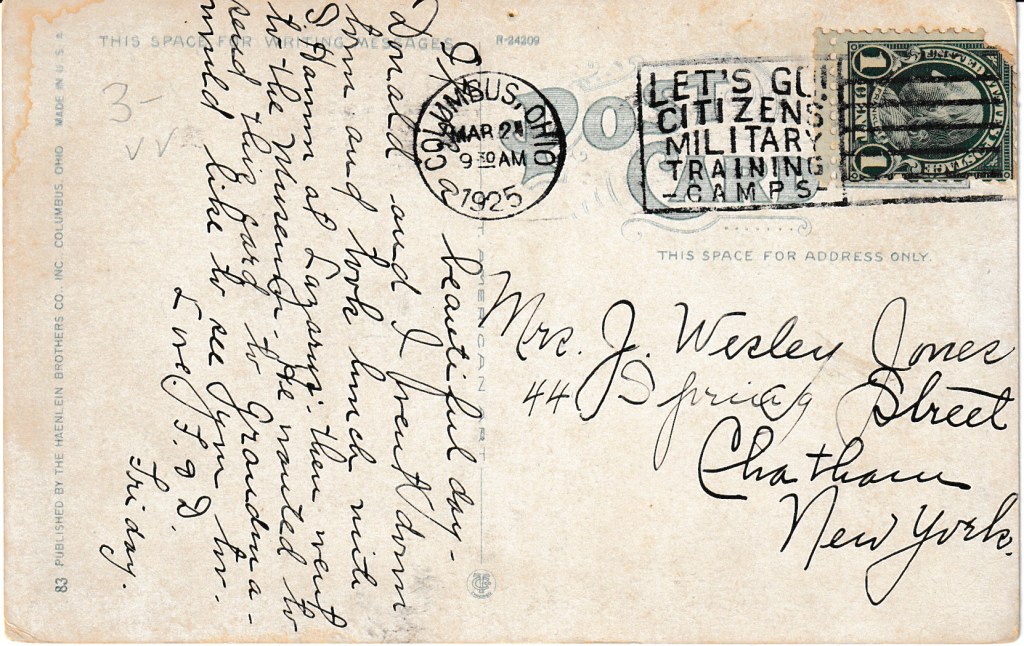 THIS SPACE FOR WRITING MESSAGES
R-24209
POST
CARD
THIS SPACE FOR ADDRESS ONLY.
COLUMBUS, OHIO
MAR 2
9 30 AM
1925
LET'S GO!
CITIZENS
MILITARY
TRAINING
-CAMPS-
1
1
a beautiful day-
Donald and I went down
town and took lunch with
at Lazarus: then went
to the Museum. He wanted to
send this card to Grandma-
would like to see
Love J. & D.
Friday.
Mrs. J. Wesley Jones
44 Spring Street
Chatham
New York.
AMERICAN ART
83 PUBLISHED BY THE HAENLEIN BROTHERS CO. INC. COLUMBUS. OHIO MADE IN U.S.A.
3-